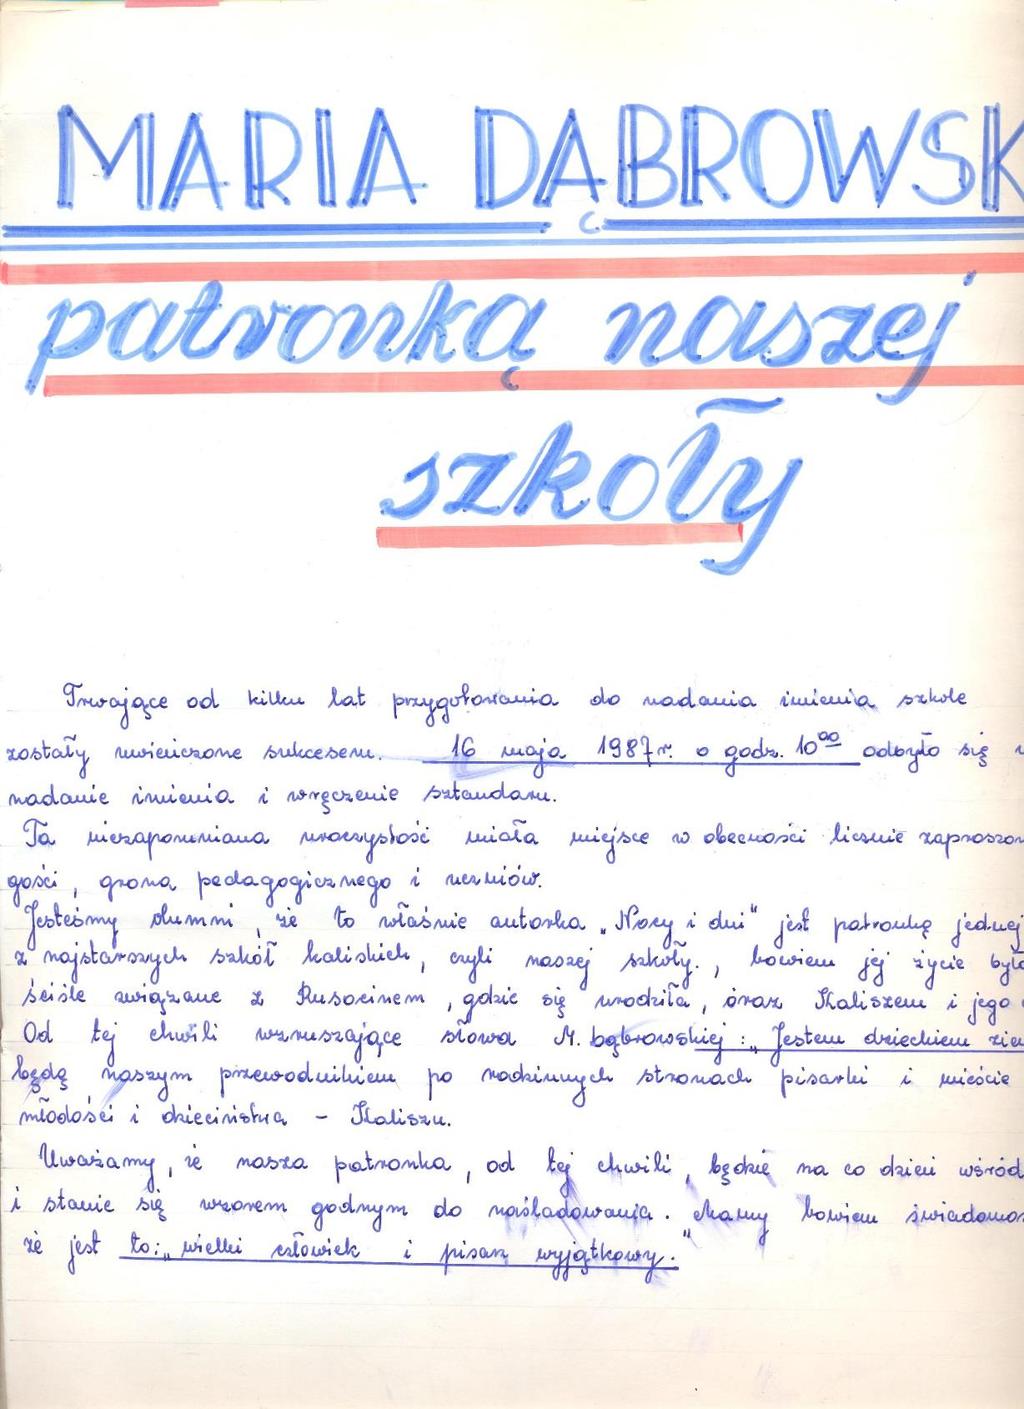 MARIA DĄBROWSK
patronką naszej
szkoły
Trwające od kilku lat przygotowania do nadania imienia szkole
zostały uwieńczone sukcesem. 16 maja 1987 r. o godz. 10⁰⁰ odbyło się
nadanie imienia i wręczenie sztandaru.
Ta niezapomniana uroczystość miała miejsce w obecności licznie zaproszon
gości, grona pedagogicznego i uczniów.
Jesteśmy dumni, że to właśnie autorka „Nocy i dni" jest patronką jednej
z najstarszych szkół kaliskich, czyli naszej szkoły., bowiem jej życie było
ściśle związane z Rusocinem, gdzie się urodziła, oraz Kaliszem i jego
Od tej chwili wzruszające słowa M. Dąbrowskiej: „Jestem dzieckiem ziem
będą naszym przewodnikiem po rodzinnych stronach pisarki i mieście
młodości i dzieciństwa - Kaliszu.
Uważamy, że nasza patronka, od tej chwili, będzie na co dzień wśród
i stanie się wzorem godnym do naśladowania. Mamy bowiem świadomoś
że jest to: „wielki człowiek i pisarz wyjątkowy."